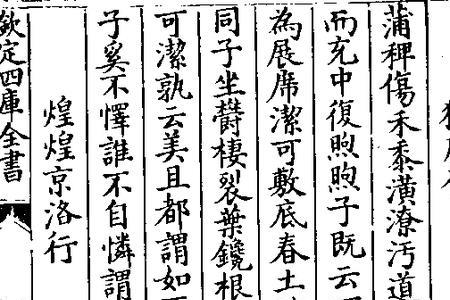 蒲稗傷禾黍潢潦汚道
而充中復煦煦子既云
為展席潔可敷底春土
同子坐欝棲裂葉鑱根
可潔孰云美且都謂如
子奚不懌誰不自憐謂
煌煌京洛行
欽定四庫全書